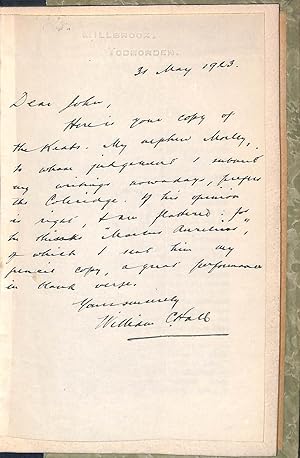 MILLBROOK,
TODMORDEN.
31 May 1923.
Dear John,
Here is your copy of
the Keats. My nephew Morley,
to whose judgement I submit
my writings nowadays, prefers
the Coleridge. If his opinion
is right, I am flattered: for
he thinks "Marcus Aurelius",
of which I sent him my
pencil copy, a great performance
in blank verse.
Yours sincerely
William C. Hall